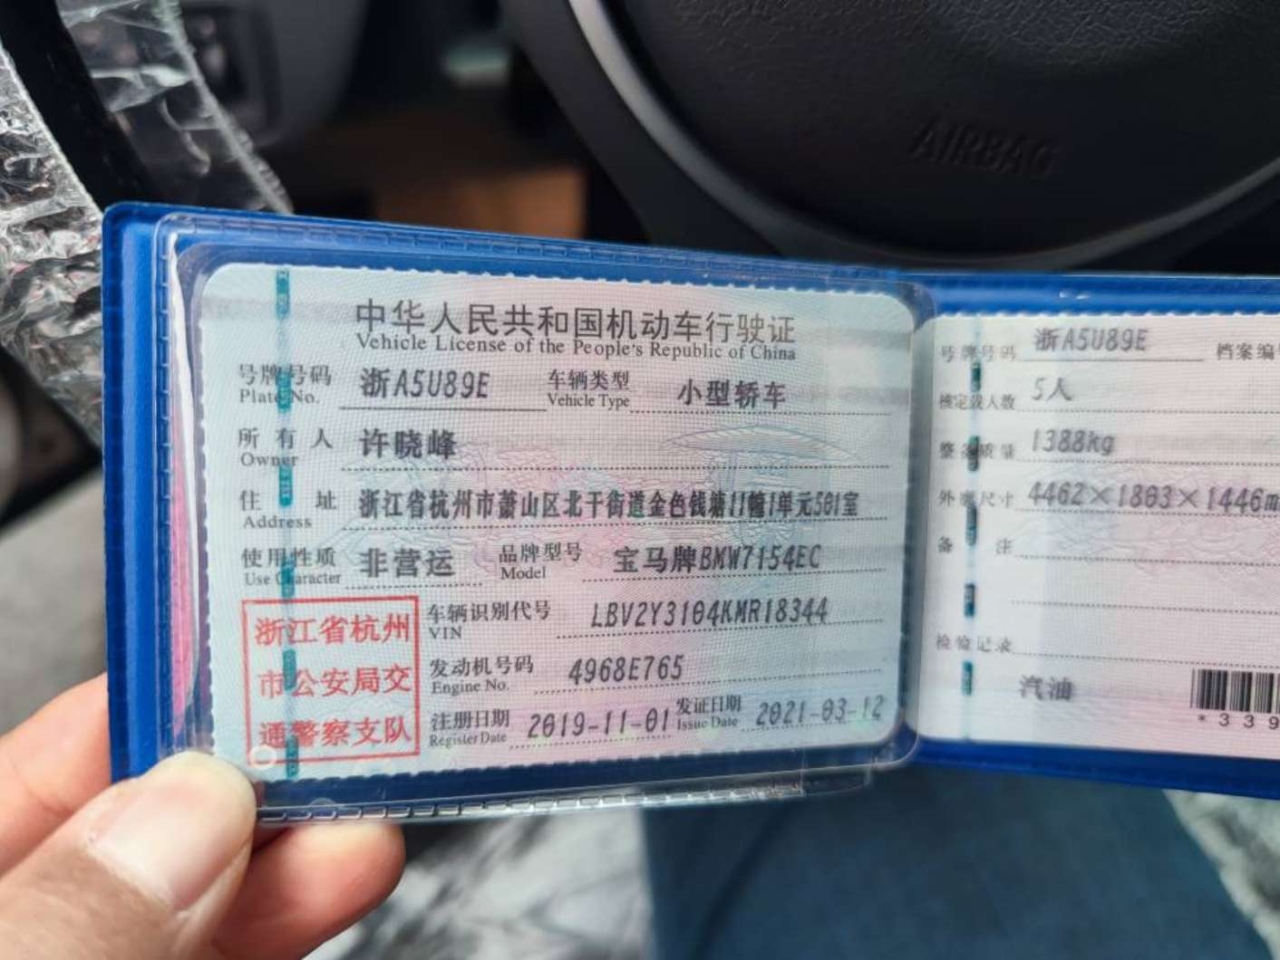 AIRBAG
中华人民共和国机动车行驶证
Vehicle License of the People's Republic of China
号牌号码 浙A5U89E 车辆类型 小型轿车
Plate No. Vehicle Type
所有人 许晓峰
Owner
住址 浙江省杭州市萧山区北干街道金色钱塘11幢1单元501室
Address
使用性质 非营运 品牌型号 宝马牌BMW7154EC
Use Character Model
浙江省杭州
市公安局交
通警察支队
车辆识别代号 LBV2Y3104KMR18344
VIN
发动机号码 4968E765
Engine No.
注册日期 2019-11-01 发证日期 2021-03-12
Register Date Issue Date
号牌号码 浙A5U89E 档案编
核定载人数 5人
整备质量 1388kg
外廓尺寸 4462×1803×1446m
备注
检验记录
汽油
*339